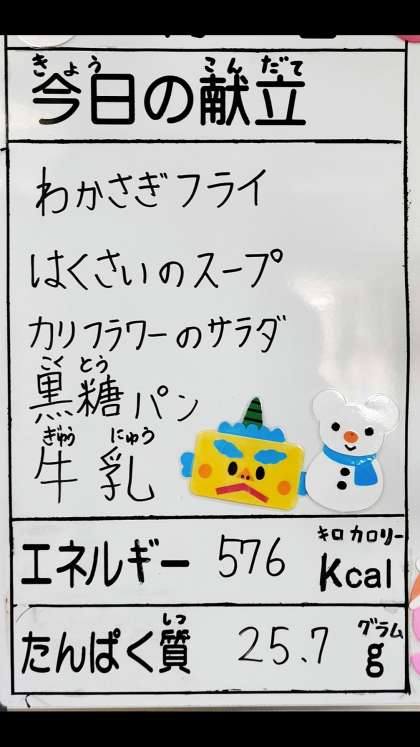 きょう こんだて
今日の献立
わかさぎフライ
はくさいのスープ
カリフラワーのサラダ
こくとう
黒糖パン
ぎゅうにゅう
牛乳
キロカロリー
エネルギー 576 Kcal
しつ グラム
たんぱく質 25.7 g